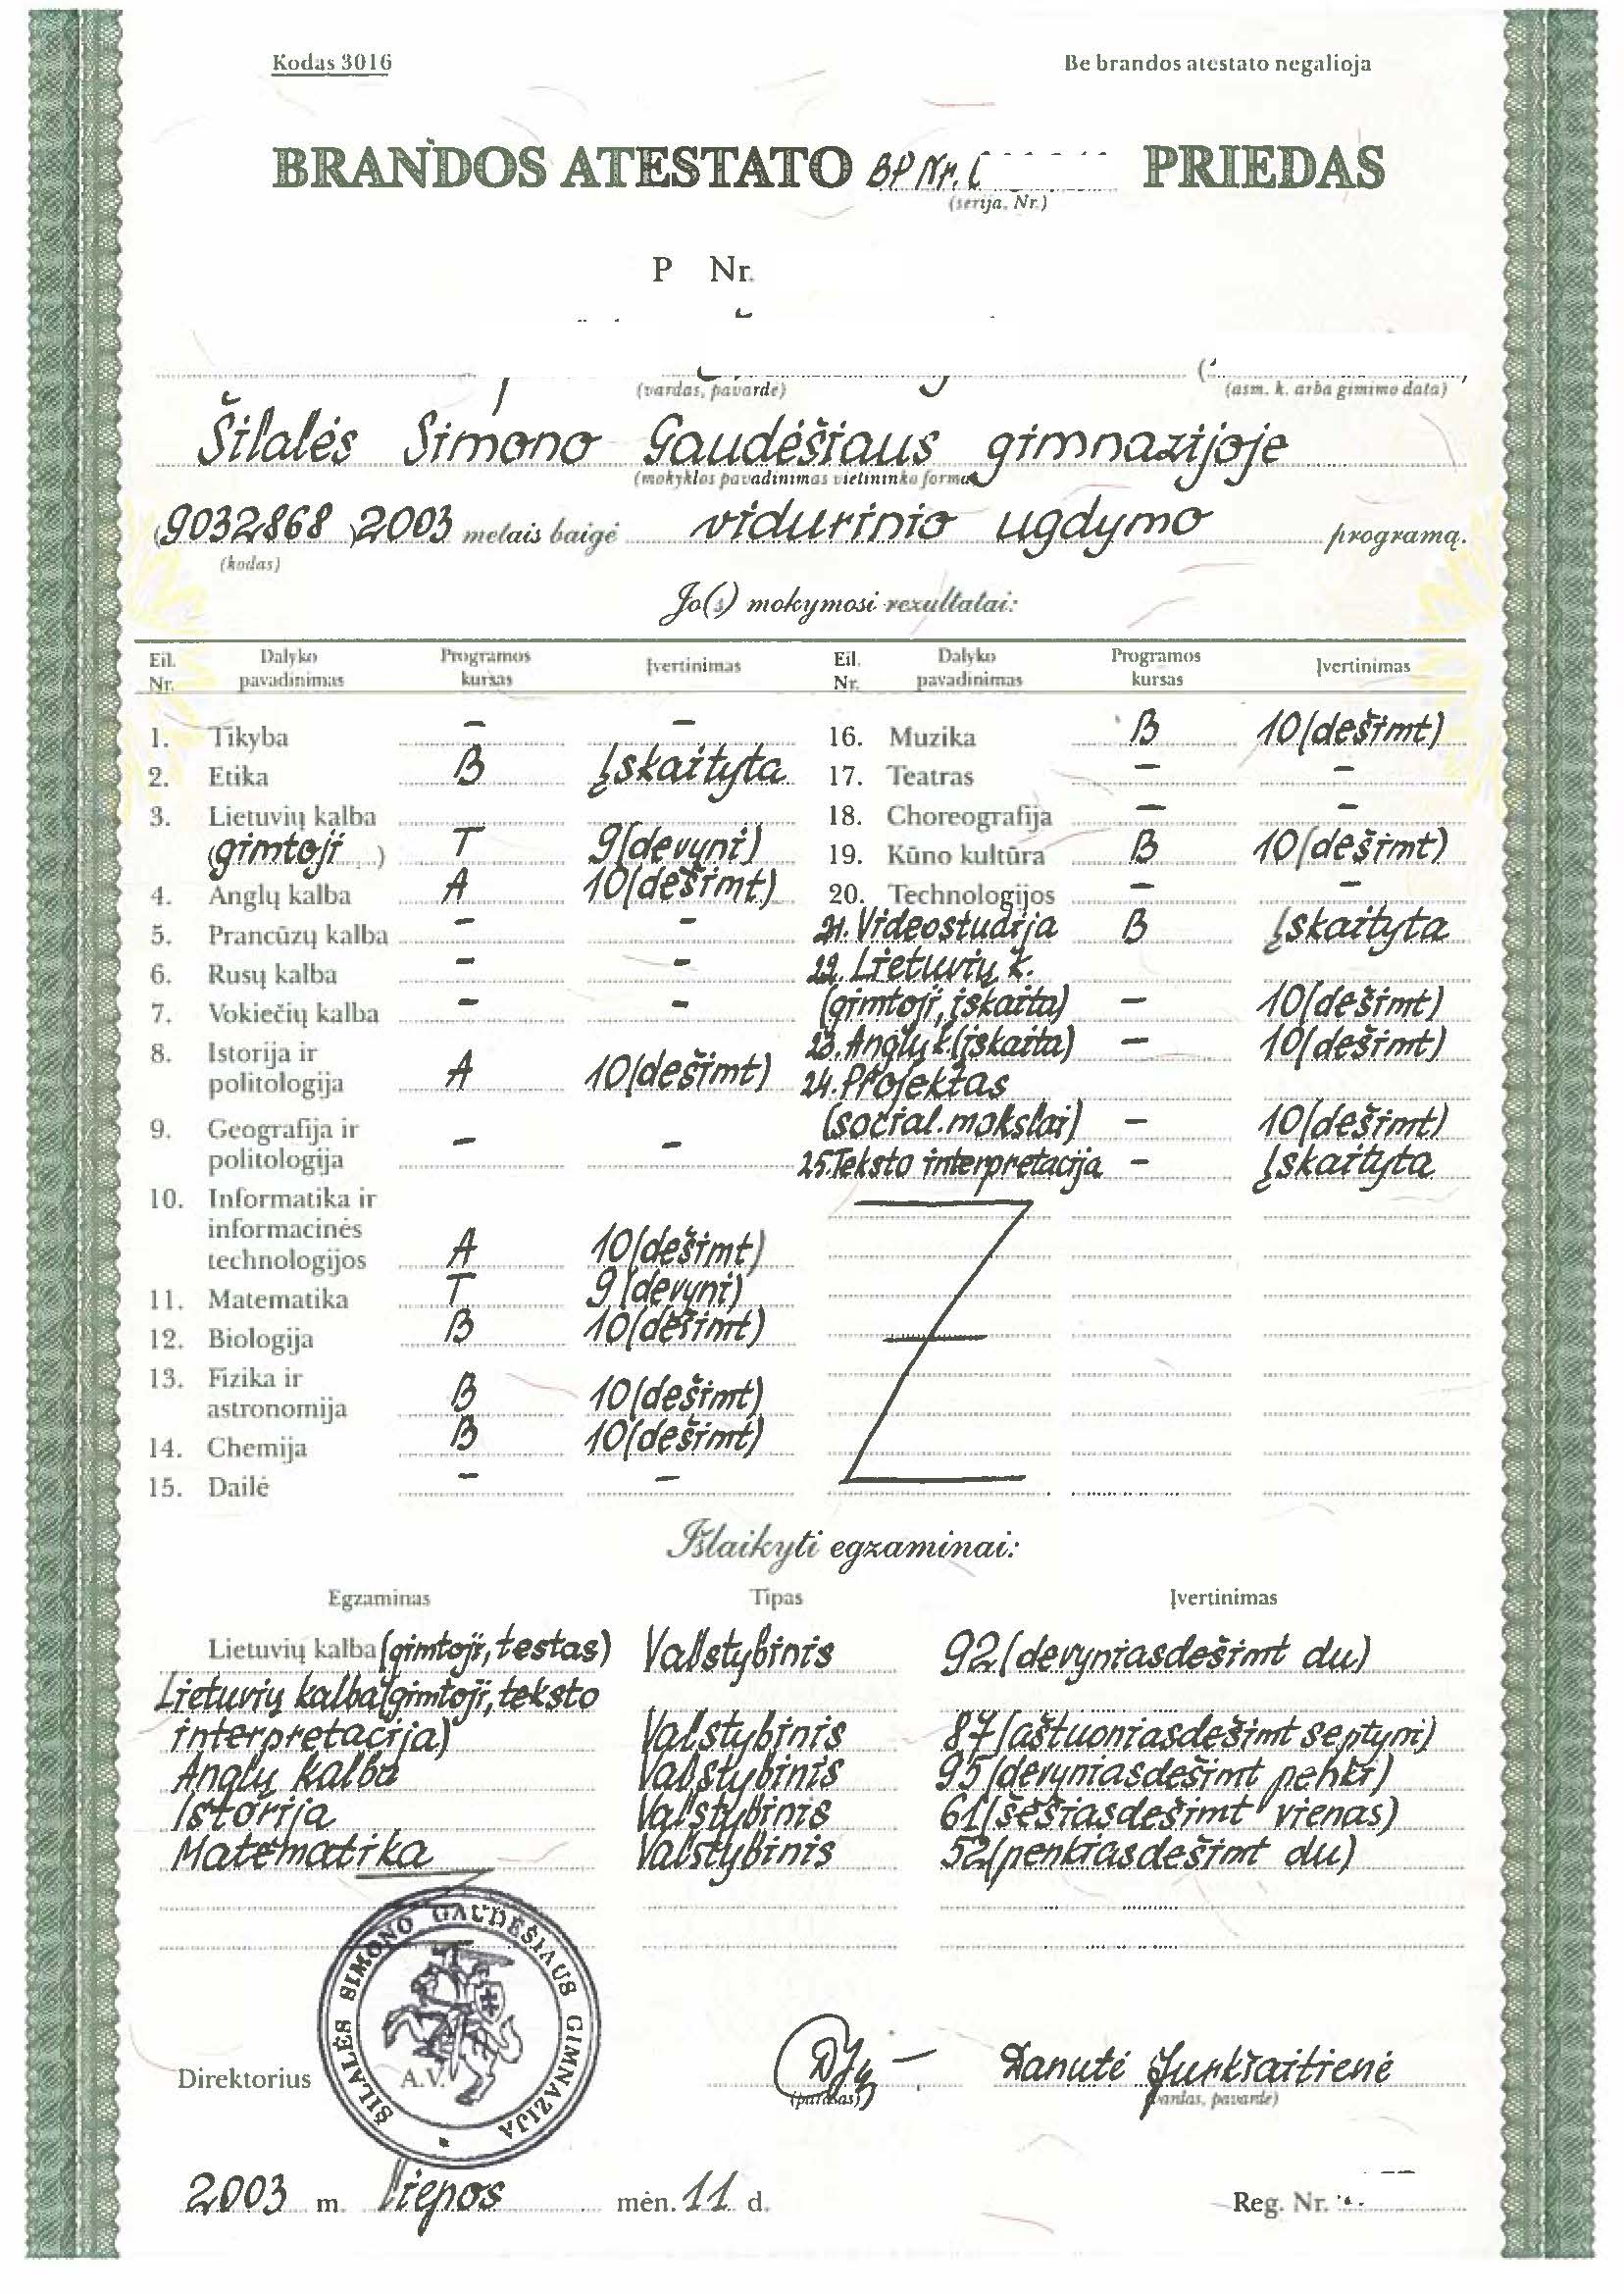 Kodas 3016
Be brandos atestato negalioja
BRANDOS ATESTATO BP Nr. PRIEDAS
(serija, Nr.)
P Nr.
(vardas, pavardė) (asm. k. arba gimimo data)
Šilalės Simono Gaudėšiaus gimnazijoje
(mokyklos pavadinimas vietininko forma)
(9032868) 2003 metais baigė vidurinio ugdymo programą.
(kodas)
Jo(s) mokymosi rezultatai:
Eil. Nr. Dalyko pavadinimas Programos kursas Įvertinimas
1. Tikyba – –
2. Etika B Įskaityta
3. Lietuvių kalba
(gimtoji) T 9(devyni)
4. Anglų kalba A 10(dešimt)
5. Prancūzų kalba – –
6. Rusų kalba – –
7. Vokiečių kalba – –
8. Istorija ir
politologija A 10(dešimt)
9. Geografija ir
politologija – –
10. Informatika ir
informacinės
technologijos A 10(dešimt)
11. Matematika T 9(devyni)
12. Biologija B 10(dešimt)
13. Fizika ir
astronomija B 10(dešimt)
14. Chemija B 10(dešimt)
15. Dailė – –
Eil. Nr. Dalyko pavadinimas Programos kursas Įvertinimas
16. Muzika B 10(dešimt)
17. Teatras – –
18. Choreografija – –
19. Kūno kultūra B 10(dešimt)
20. Technologijos – –
21. Videostudija B Įskaityta
22. Lietuvių k.
(gimtoji, įskaita) – 10(dešimt)
23. Anglų k.(įskaita) – 10(dešimt)
24. Projektas
(social. mokslai) – 10(dešimt)
25. Teksto interpretacija – Įskaityta
Išlaikyti egzaminai:
Egzaminas Tipas Įvertinimas
Lietuvių kalba (gimtoji, testas) Valstybinis 92(devyniasdešimt du)
Lietuvių kalba(gimtoji, teksto
interpretacija) Valstybinis 87(aštuoniasdešimt septyni)
Anglų kalba Valstybinis 95(devyniasdešimt penki)
Istorija Valstybinis 61(šešiasdešimt vienas)
Matematika Valstybinis 52(penkiasdešimt du)
ŠILALĖS SIMONO GAUDĖŠIAUS GIMNAZIJA
Direktorius A.V. Danutė Jurkšaitienė
(parašas) (vardas, pavardė)
2003 m. liepos mėn. 11 d. Reg. Nr.